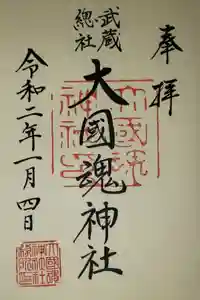 奉拝
武蔵
總社
大國魂神社
令和二年一月四日